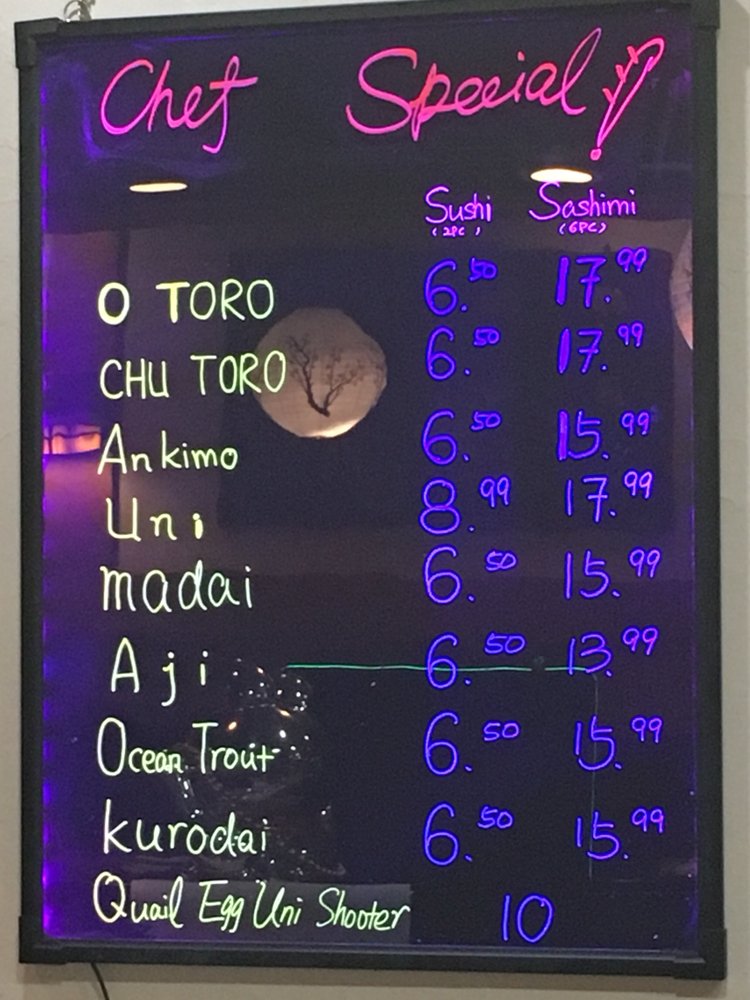 Chef Special!
Sushi Sashimi
(2PC) (6PC)
O TORO 6.50 17.99
CHU TORO 6.50 17.99
Ankimo 6.50 15.99
Uni 8.99 17.99
madai 6.50 15.99
Aji 6.50 13.99
Ocean Trout 6.50 15.99
kurodai 6.50 15.99
Quail Egg Uni Shooter 10